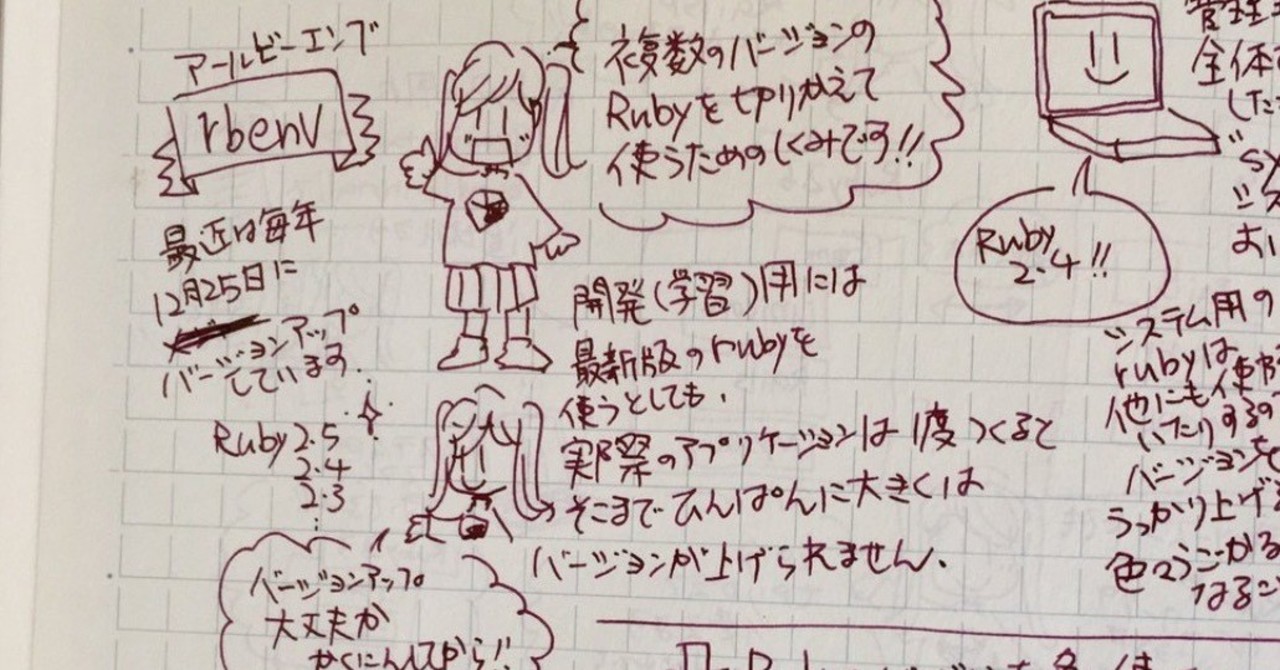 アールビーエンブ
rbenv
最近は毎年
12月25日に
バージョンアップ
しています.
Ruby 2.5
2.4
2.3
バージョンアップ
大丈夫か
かくにんしてから!!
複数のバージョンの
Rubyを切りかえて
使うためのしくみです!!
開発(学習)用には
最新版のrubyを
使うとしても、
実際のアプリケーションは1度つくると
そこまでひんぱんに大きくは
バージョンが上げられません.
Ruby
2.4!!
管理
全体の
した
"sy
シス
おい
システム用の
rubyは
他にも使わ
いたりするの
バージョンを
うっかり上げ
色々うごかる
なるこ